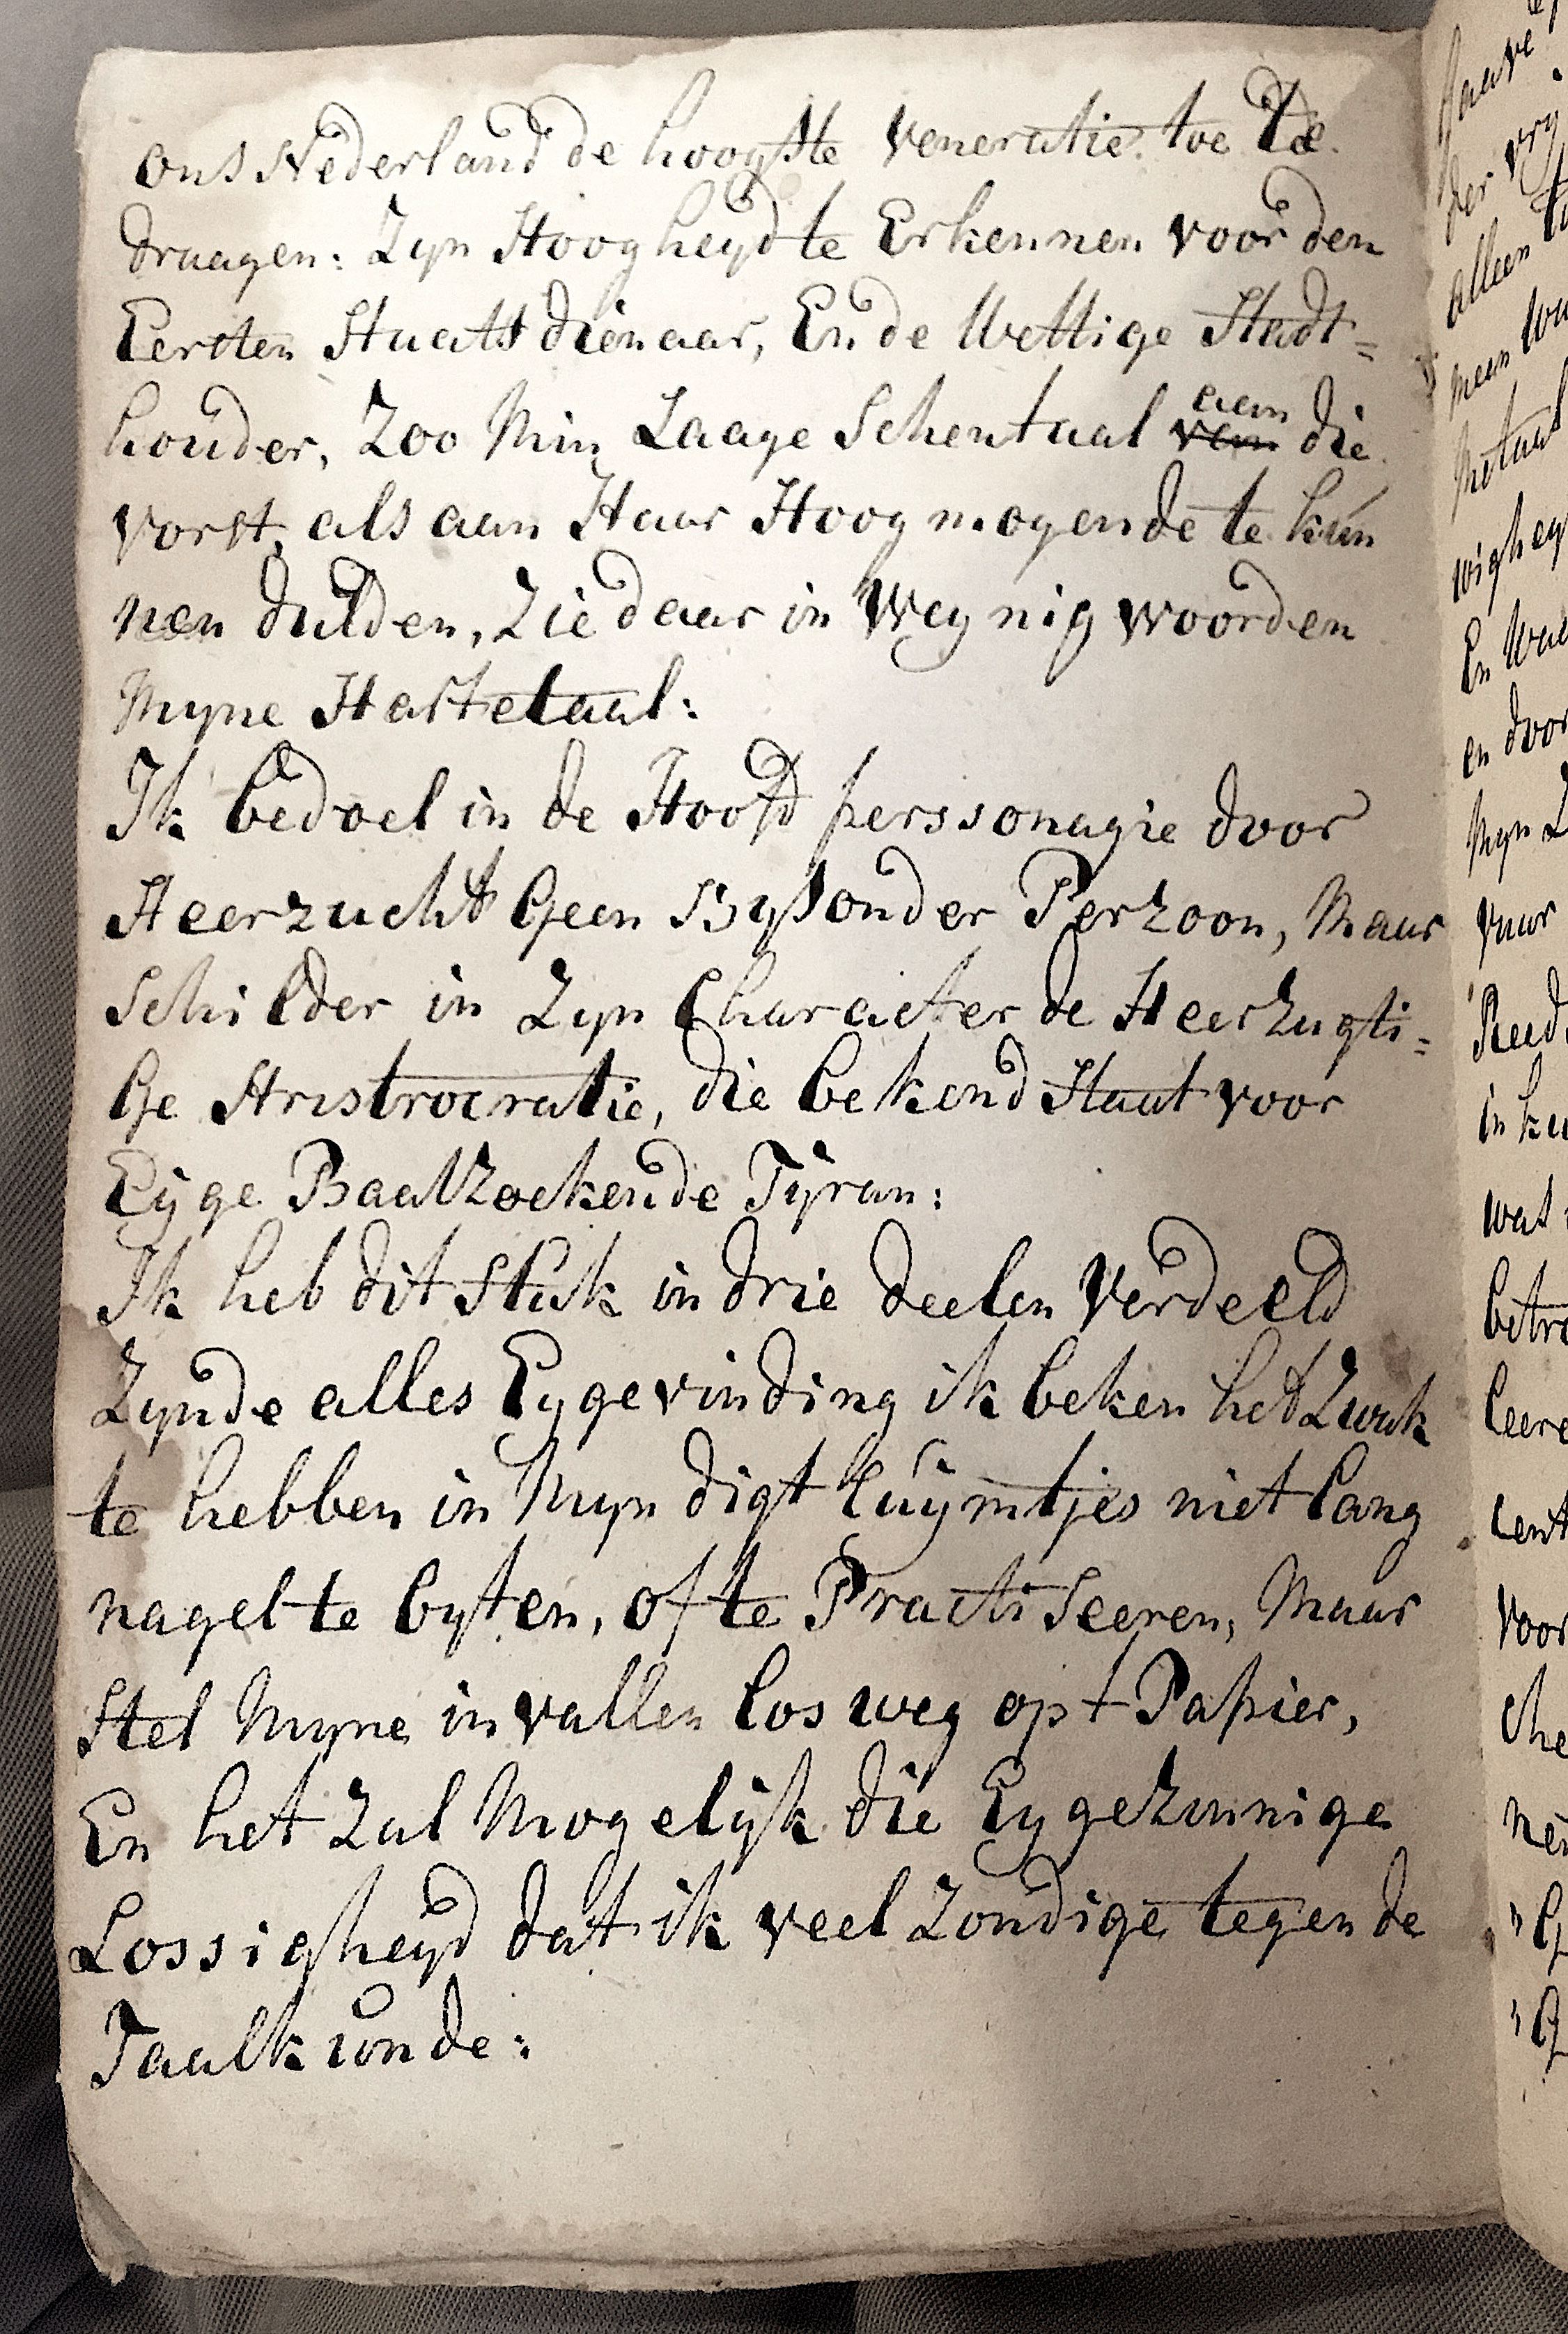 ons Nederland de hoogste Veneratie toe te
draagen: Zyn Hoogheyd te Erkennen voor den
Eersten Staats dienaar, En de Wettige Stadt=
houder, Zoo Min Laage Schentaal aan die
vorst, als aan Haar Hoog mogende te kun
nen dulden, Zie daar in Weynig woorden
Myne Hartetaal:
Ik bedoel in de Hoofd perssonagie door
Heerzucht Geen Bysonder Perzoon, Maar
Schilder in Zyn Character de Heerzugti=
Ge Aristrocratie, die bekend Staat voor
Eyge Baatzoekende Tyran:
Ik heb dit Stuk in drie deelen Verdeeld
Zynde alles Eyge vinding ik beken het Zwak
te hebben in Myn digt luymtjes niet lang
nagel te byten, of te Practiseeren, Maar
Stel Myne invallen los weg op t Papier,
En het Zal Mogelyk die Eygezinnige
Lossigheyd dat ik veel Zondige tegen de
Taalkunde:
der vry
alleen
Metaal
wighey
En
en door
Myn
vuur
in
was
betro
leere
voor